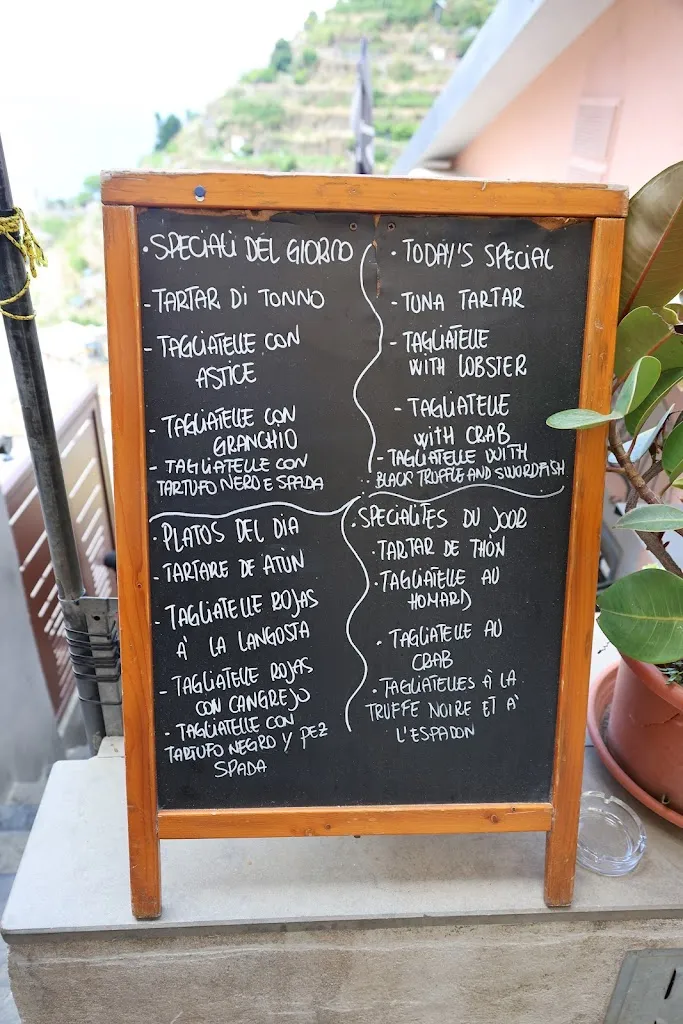 · SPECIALI DEL GIORNO
- TARTAR DI TONNO
- TAGLIATELLE CON
ASTICE
- TAGLIATELLE CON
GRANCHIO
- TAGLIATELLE CON
TARTUFO NERO E SPADA
· TODAY'S SPECIAL
- TUNA TARTAR
- TAGLIATELLE
WITH LOBSTER
- TAGLIATELLE
WITH CRAB
- TAGLIATELLE WITH
BLACK TRUFFLE AND SWORDFISH
· PLATOS DEL DIA
- TARTARE DE ATÙN
- TAGLIATELLE ROJAS
À LA LANGOSTA
- TAGLIATELLE ROJAS
CON CANGREJO
- TAGLIATELLE CON
TARTUFO NEGRO Y PEZ
SPADA
· SPECIALITES DU JOOR
· TARTAR DE THÒN
· TAGLIATELLE AU
HOMARD
· TAGLIATELLE AU
CRAB
· TAGLIATELLES À LA
TRUFFE NOIRE ET À
L'ESPADON